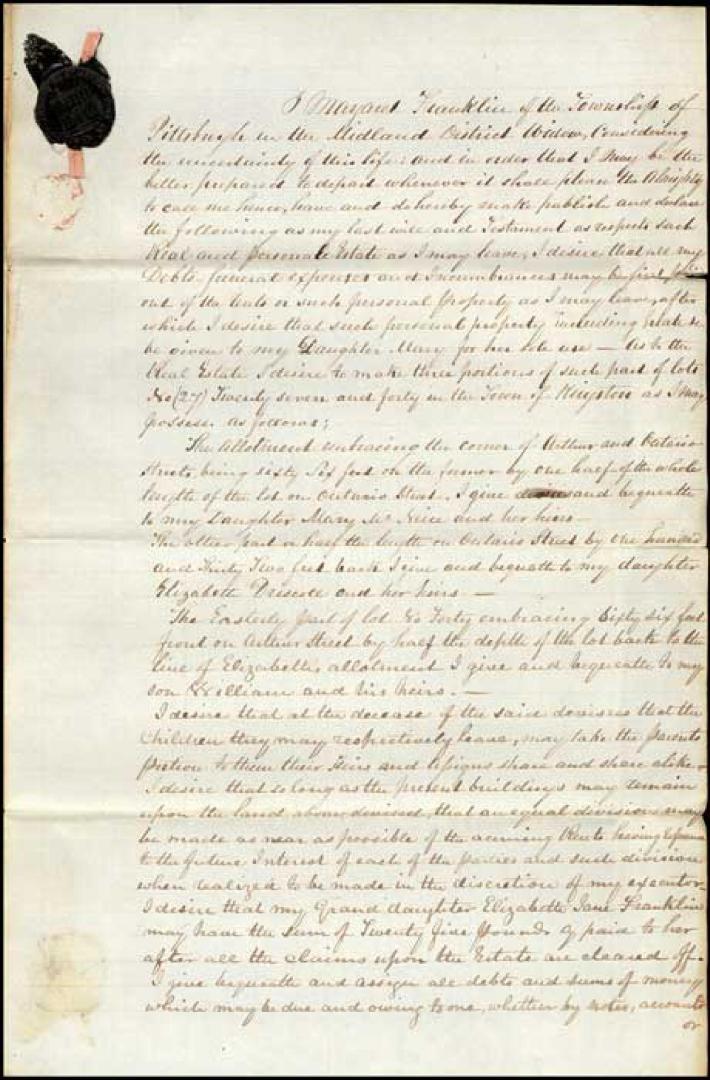 I Margaret Franklin of the Township of
Pittsburgh in the Midland District Widow, Considering
the uncertainty of this life: and in order that I may be the
better prepared to depart whenever it shall please the Almighty
to call me hence, have and do hereby make publish and declare
the following as my last will and Testament as respects such
Real and personal Estate as I may leave, I desire that all my
Debts funeral expenses and Incumbrances may be first
out of the or such personal property as I may leave, after
which I desire that such personal property including
be given to my Daughter Mary for her sole use — As to the
Real Estate I desire to make three portions of such part of lots
No (27) Twenty seven and forty in the Town of Kingston as I may
possess as follows;
The Allotment embracing the corner of Arthur and Ontario
Streets, being sixty six feet on the former by one half of the whole
length of the lot on Ontario Street, I give and bequeath
to my Daughter Mary and her heirs —
The other part or half the length on Ontario Street by One hundred
and Thirty Two feet back I give and bequeath to my daughter
Elizabeth Driscoll and her heirs —
The Easterly part of lot No Forty embracing Sixty six feet
front on Arthur Street by half the depth of the lot back to the
line of Elizabeths, allotment I give and bequeath to my
son William and his heirs. —
I desire that at the decease of the said devisees that the
Children they may respectively leave, may take the parents
portion to them their Heirs and Assigns share and share alike.
I desire that so long as the present buildings may remain
upon the land above devised, that an equal division may
be made as near as possible of the accruing Rents having
to the future Interest of each of the parties and such division
when realized to be made in the discretion of my executor
I desire that my Grand daughter Elizabeth Jane Franklin
may have the sum of Twenty five pounds paid to her
after all the claims upon the Estate are cleared off.
I give bequeath and assign all debts and sums of money
which may be due and owing to me, whether by notes, accounts
or